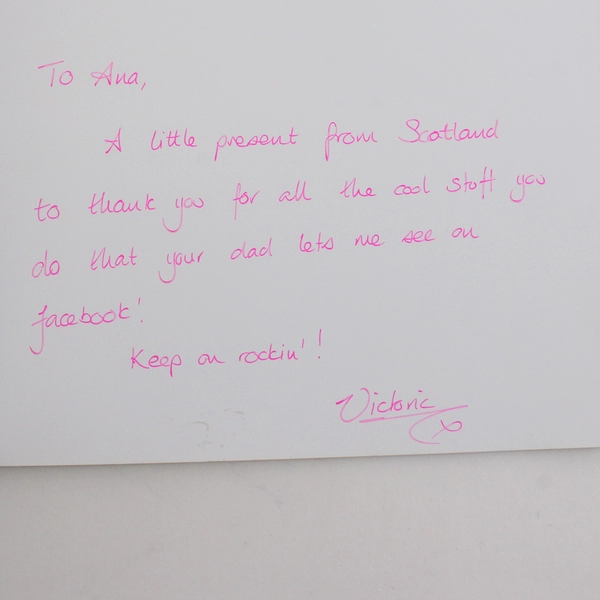 To Ana,
A little present from Scotland
to thank you for all the cool stuff you
do that your dad lets me see on
facebook!
Keep on rockin'!
Victoria
x